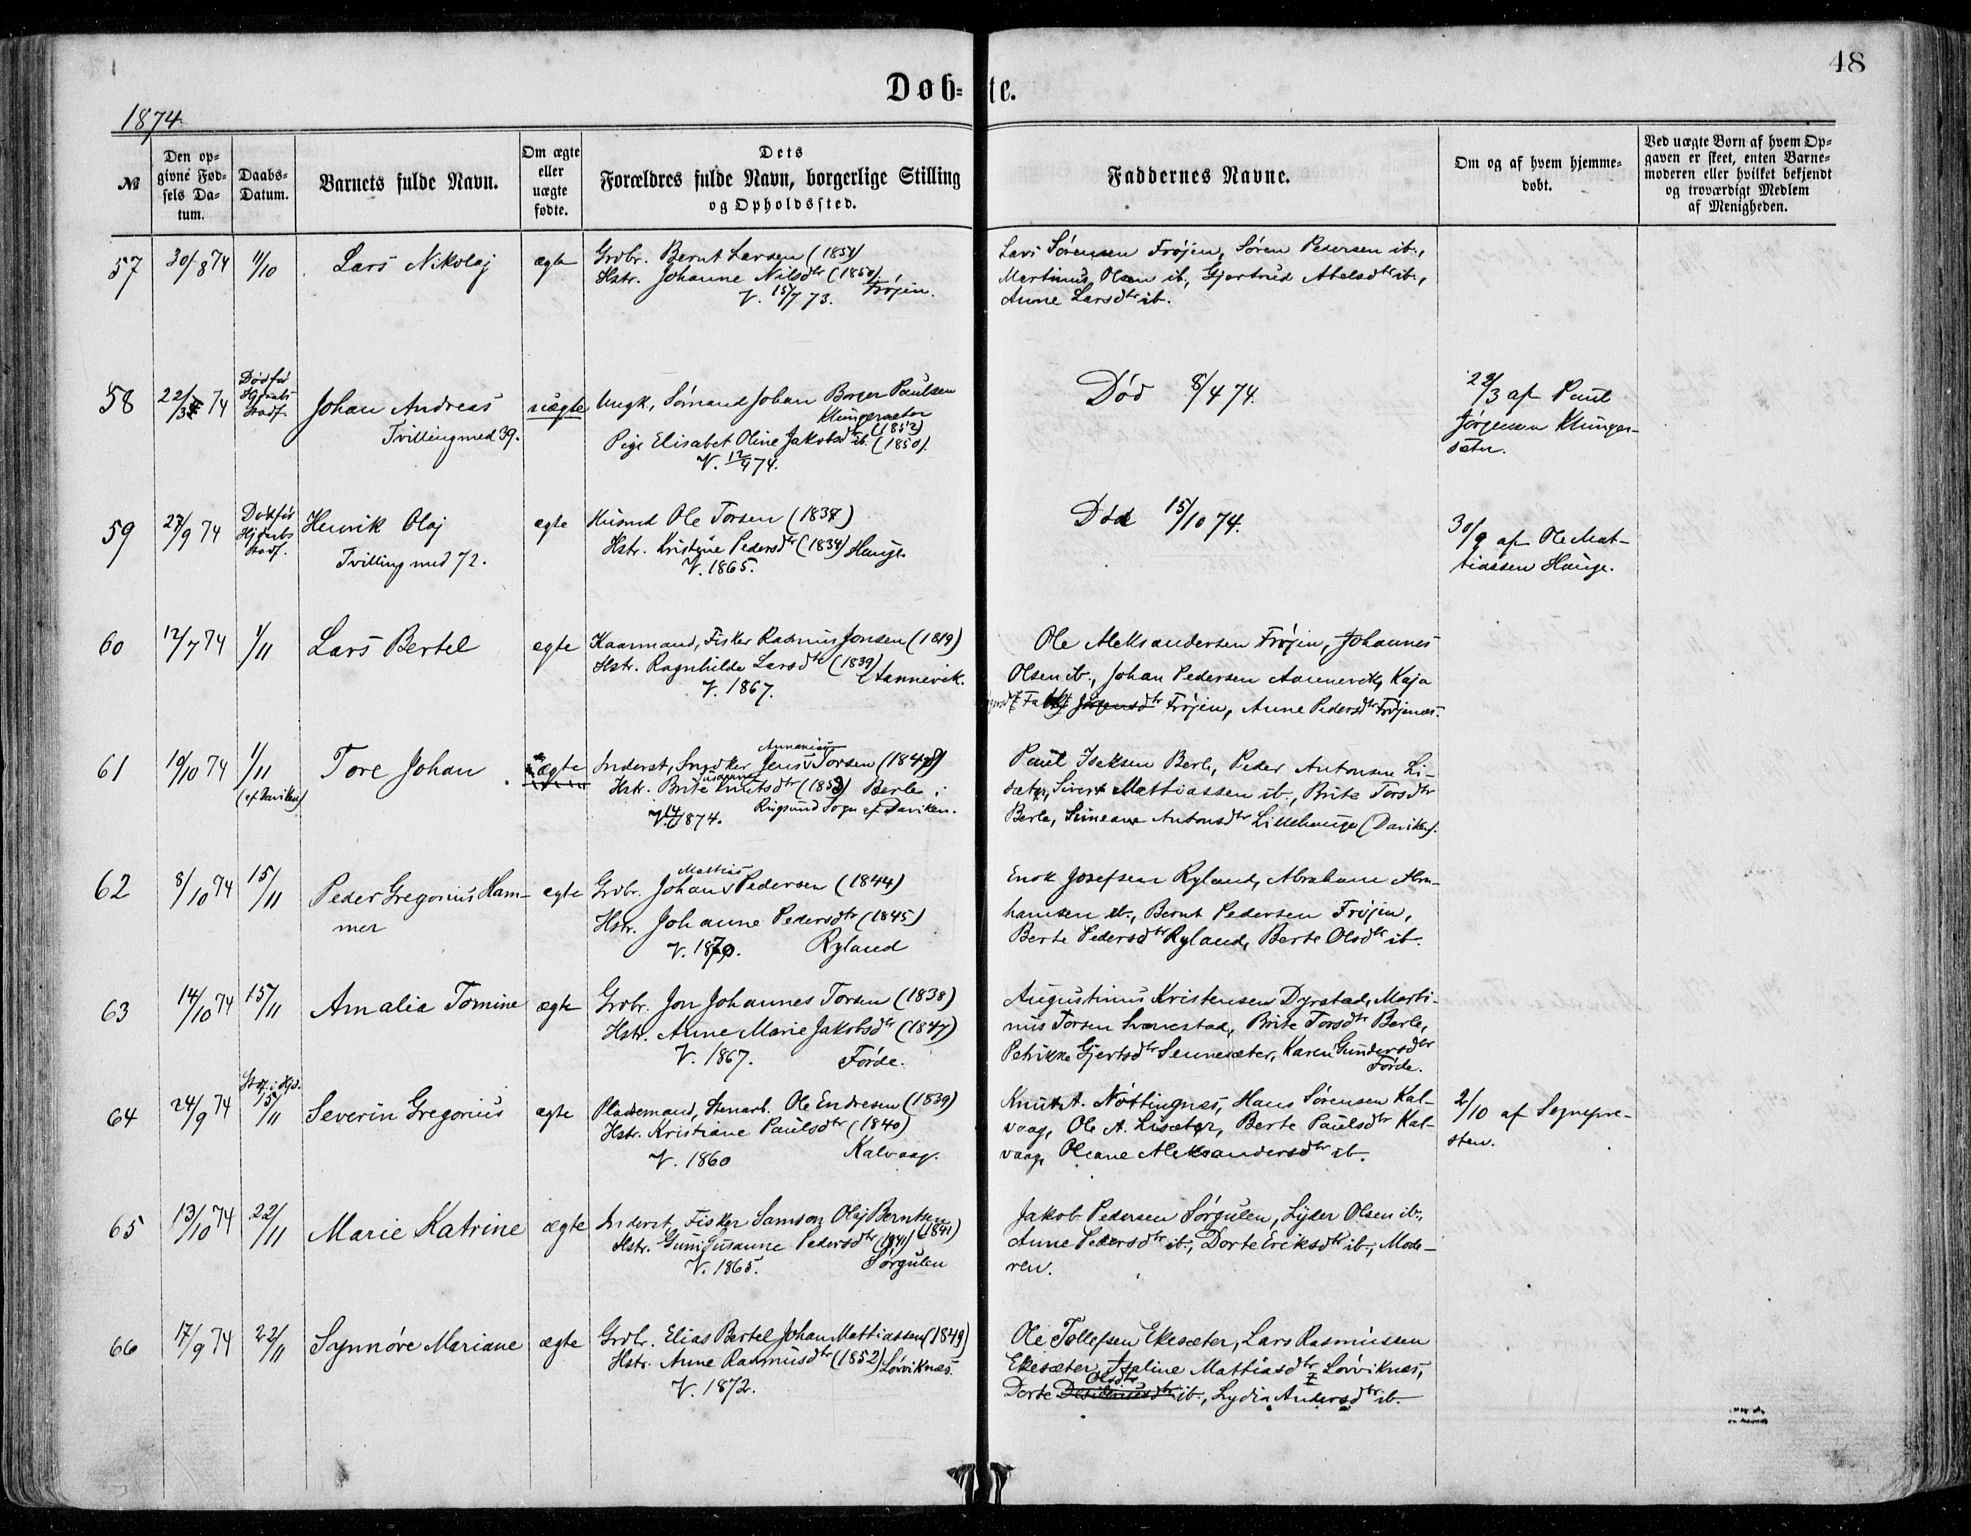 48
Døb-te.
1874
№
Den op-
givne Fød-
sels Da-
tum.
Daabs-
Datum.
Barnets fulde Navn.
Om ægte
eller
uægte
fødte.
Dets
Forældres fulde Navn, borgerlige Stilling
og Opholdssted.
Faddernes Navne.
Om og af hvem hjemme-
døbt.
Ved uægte Børn af hvem Op-
gaven er skeet, enten Barne-
moderen eller hvilket bekjendt
og troværdigt Medlem
af Menigheden.
57 30/8 74 11/10 Lars Nikolaj ægte Grdbr. Bernt Larsen
Hstr. Johanne Nilsdtr (1850) Frøjen.
V. 15/7 73.
Lars Sørensen Frøjen, Søren Pedersen ib.,
Martinus Olsen ib., Gjertrud Abelsdtr ib.,
Anne Larsdtr ib.
58 22/3 74 Død før
Kj.daabs
Stadf.
Johan Andreas
Tvilling med 39.
uægte
Ungk., Sømand Johan Borger Paulsen
Klungersæter (1852)
Pige Elisabet Oline Jakobsdtr ib. (1850).
V. 12/4 74.
Død 8/4 74.
22/3 af Paul
Jørgensen Klunger-
sæter.
59 27/9 74 Død før
Hj.daabs
Stadf.
Henrik Olaj
Tvilling med 72.
ægte
Husmd Ole Torsen (1837)
Hstr. Kristine Pedersdtr (1834) Hauge.
V. 1865.
Død 15/10 74.
30/9 af Ole Mat-
tiassen Hauge.
60 12/7 74 1/11 Lars Bertel ægte Kaarmand, Fisker Rasmus Jonsen (1819)
Hstr. Ragnhilda Larsdtr (1839) Stannevik.
V. 1867.
Ole Aleksandersen Frøjen, Johannes
Olsen ib., Johan Pedersen Aannevik, Kaja
Jørgensdtr Frøjen, Anne Pedersdtr Frøjenæs.
61 19/10 74 1/11
(ef. Daviken)
Tore Johan ægte
Annanias
Inderst, Snedker Jens Torsen
Susanne
Hstr. Brite Knutsdtr Berle i
V. 1874. Rugsund Sogn ef. Daviken.
Paul Iseksen Berle, Peder Antonsen Li-
sæter, Sivert Mattiassen ib., Brite Torsdtr
Berle, Simeane Antonsdtr Lillehauge (Daviken).
62 8/10 74 15/11 Peder Gregorius Ham-
mer
ægte
Mattias
Grdbr. Johan Pedersen (1844)
Hstr. Johanne Pedersdtr (1845)
V. 1870. Ryland
Enok Josefsen Ryland, Abraham Abra-
hamsen ib., Bernt Pedersen Frøjen,
Berte Pedersdtr Ryland, Berte Olsdtr ib.
63 14/10 74 15/11 Amalia Tomine ægte Grdbr. Jon Johannes Torsen (1838)
Hstr. Anne Marie Jakobsdtr (1847)
V. 1867. Førde.
Augustinus Kristensen Dyrstad, Marti-
nus Torsen Svanestad, Brite Torsdtr Berle,
Petrikke Gjertsdtr Sennesæter, Karen Gundersdtr
Førde.
64 24/9 74 Stdf. i Kj.
15/11 Severin Gregorius ægte Pladsemand, Stenarb. Ole Endresen (1839)
Hstr. Kristiane Paulsdtr (1840)
V. 1860 Kalvaag.
Knut A. Nøttingnæs, Hans Sørensen Kal-
vaag, Ole A. Lisæter, Berte Paulsdtr Kal-
vaag, Oliane Aleksandersdtr ib.
2/10 af Sognepre-
sten.
65 13/10 74 22/11 Marie Katrine ægte Inderst, Fisker Samson Olaj Berntsen (1841)
Hstr. Guni Susanne Pedersdtr (1841)
V. 1865. Sørgulen
Jakob Pedersen Sørgulen, Lyder Olsen ib.,
Anne Pedersdtr ib., Dorte Eriksdtr ib., Mode-
ren.
66 17/9 74 22/11 Synnøve Mariane ægte Grdbr. Elias Bertel Johan Mattiassen (1849)
Hstr. Anne Rasmusdtr (1852) Lørviknæs.
V. 1872.
Ole Tollefsen Ekesæter, Lars Rasmussen
Ekesæter, Isaline Mattiasdtr Lørviknæs,
Olsdtr
Dorte ib., Lydia Andersdtr ib.